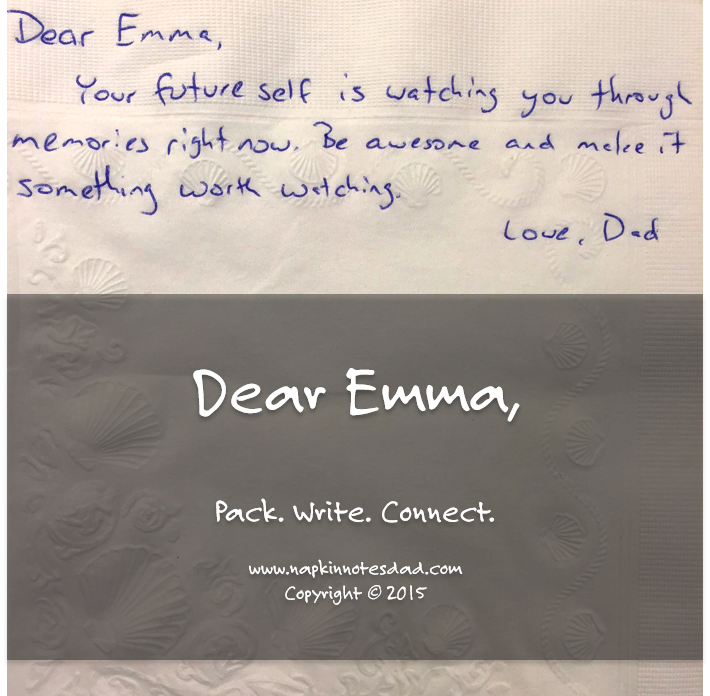 Dear Emma,
Your future self is watching you through
memories right now. Be awesome and make it
something worth watching.
Love, Dad
Dear Emma,
Pack. Write. Connect.
www.napkinnotesdad.com
Copyright © 2015